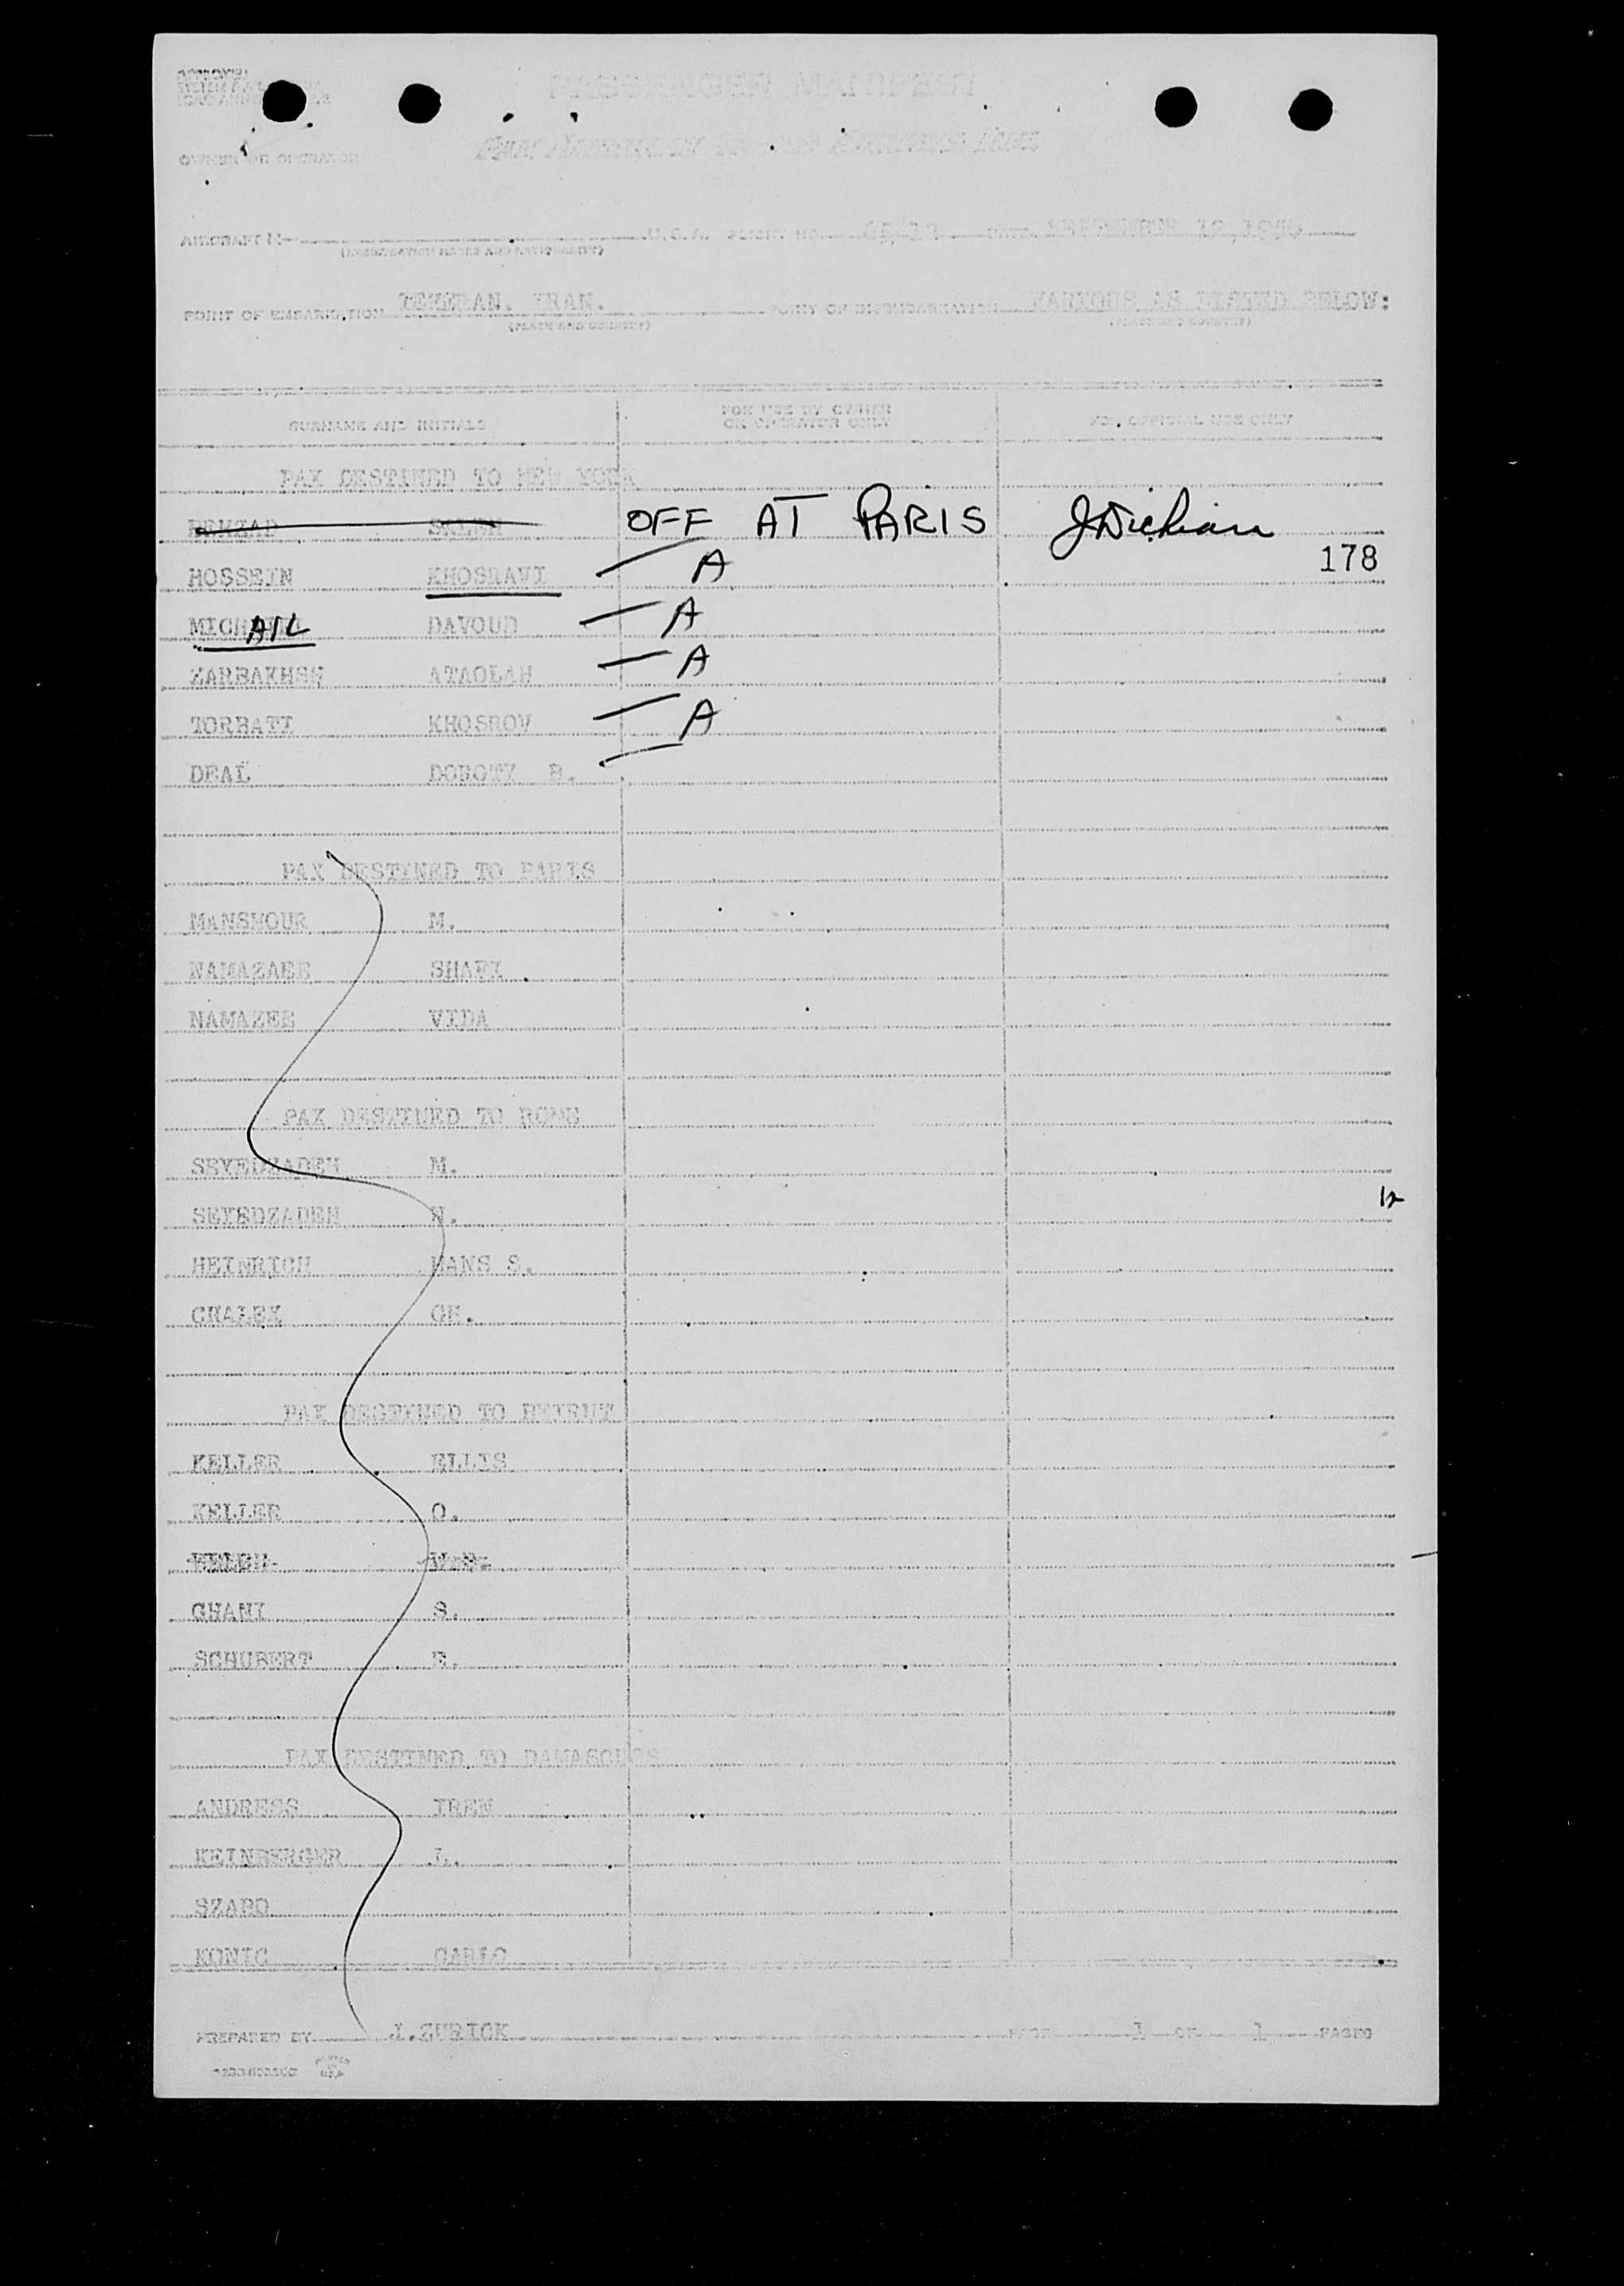 PASSENGER MANIFEST
OWNER OR OPERATOR Pan American World Airways Inc.
AIRCRAFT N- U.S.A. FLIGHT NO. DATE SEPTEMBER 12,
(REGISTRATION MARKS AND NATIONALITY)
POINT OF EMBARKATION TEHERAN, IRAN. POINT OF DISEMBARKATION VARIOUS AS LISTED BELOW:
(PLACE AND COUNTRY) (PLACE AND COUNTRY)
SURNAME AND INITIALS FOR USE BY OWNER OR OPERATOR ONLY FOR OFFICIAL USE ONLY
PAX DESTINED TO NEW YORK
BEHZAD OFF AT PARIS
178
HOSSEIN KHOSRAVI — A
MICHAIL DAVOUD — A
ZARBAKHSH ATAOLAH — A
TORBATI KHOSROV — A
DEAL DOROTY B. —
PAX DESTINED TO PARIS
MANSHOUR M.
NAMAZAEE SHAFI
NAMAZEE VIDA
PAX DESTINED TO ROME
SEYEDZADEH M.
SEYEDZADEH H.
HEINRICH HANS S.
GH.
PAX DESTINED TO BEIRUT
KELLER ELLIS
KELLER O.
GHANI S.
SCHUBERT E.
PAX DESTINED TO DAMASCUS
ANDRESS IREN
KEINBERGER L.
SZABO
KONIG CARLO
PREPARED BY J.ZURICK PAGE 1 OF 1 PAGES